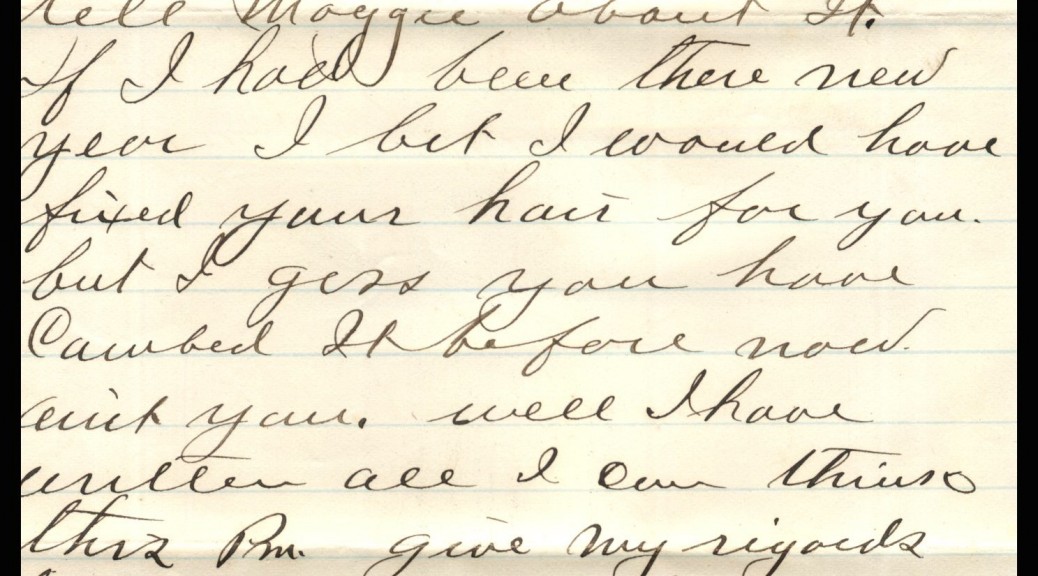 tell Maggie about It.
If I had been there new
year I bet I would have
fixed your hair for you.
but I gess you have
Caumbed It before now.
aint you. well I have
written all I can think
this Pm. give my rigards